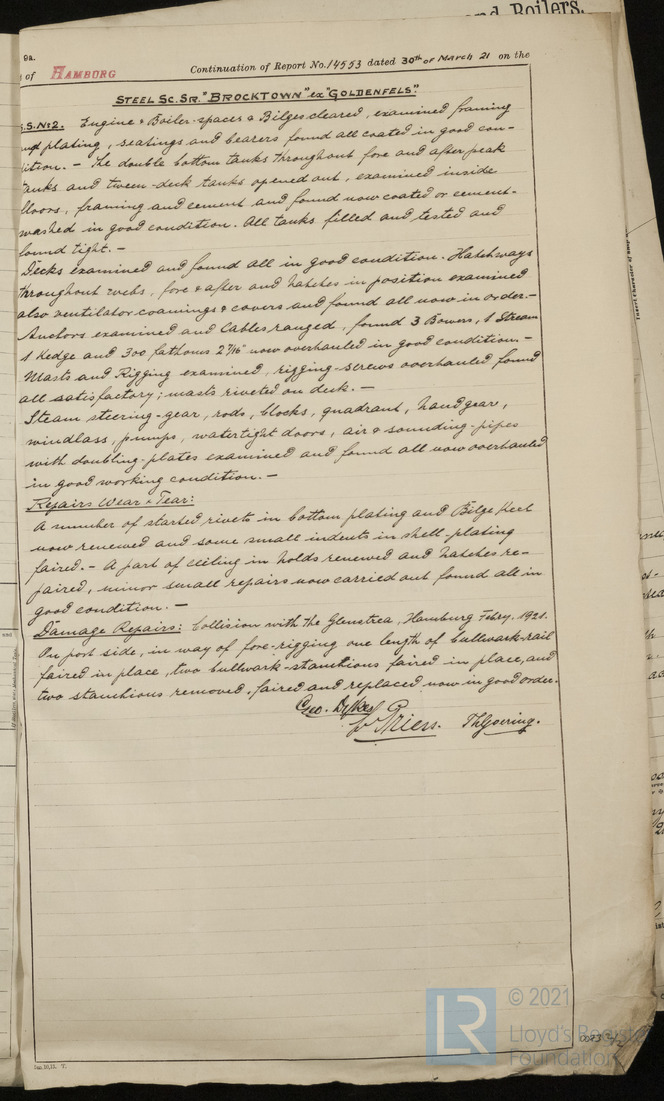 nd Boilers.
9a.
of HAMBURG Continuation of Report No. 14553 dated 30th of March 21 on the
STEEL SC. SR. "BROCKTOWN" ex "GOLDENFELS".
S.S. No 2. Engine & Boiler-spaces & Bilges cleared, examined framing
and plating, seatings and bearers found all coated in good con-
dition. - The double bottom tanks throughout fore and after peak
tanks and tween-deck tanks opened out, examined inside
floors, framing and cement and found now coated or cement-
washed in good condition. All tanks filled and tested and
found tight. -
Decks examined and found all in good condition. Hatchways
throughout webs, fore & after and hatches in position examined
also ventilator coamings & covers and found all now in order. -
Anchors examined and Cables ranged, found 3 Bowers, 1 Stream
1 Kedge and 300 fathoms 2 7/16" now overhauled in good condition. -
Masts and Rigging examined, rigging-screws overhauled found
all satisfactory; masts riveted on deck. -
Steam steering-gear, rods, blocks, quadrant, handgear,
windlass, pumps, watertight doors, air & sounding-pipes
with doubling-plates examined and found all now overhauled
in good working condition. -
Repairs Wear & Tear:
A number of started rivets in bottom plating and Bilge Keel
now renewed and some small indents in shell-plating
faired. - A part of ceiling in holds renewed and hatches re-
paired, minor small repairs now carried out found all in
good condition. -
Damage Repairs: Collision with the Glenstrea, Hamburg Febry. 1921.
On port side, in way of fore-rigging one length of bullwark-rail
faired in place, two bullwark-stanchions faired in place, and
two stanchions removed, faired and replaced now in good order.
Geo. Dykes
Priess. Th Goering.
© 2021
LR Lloyd's Register
Foundation